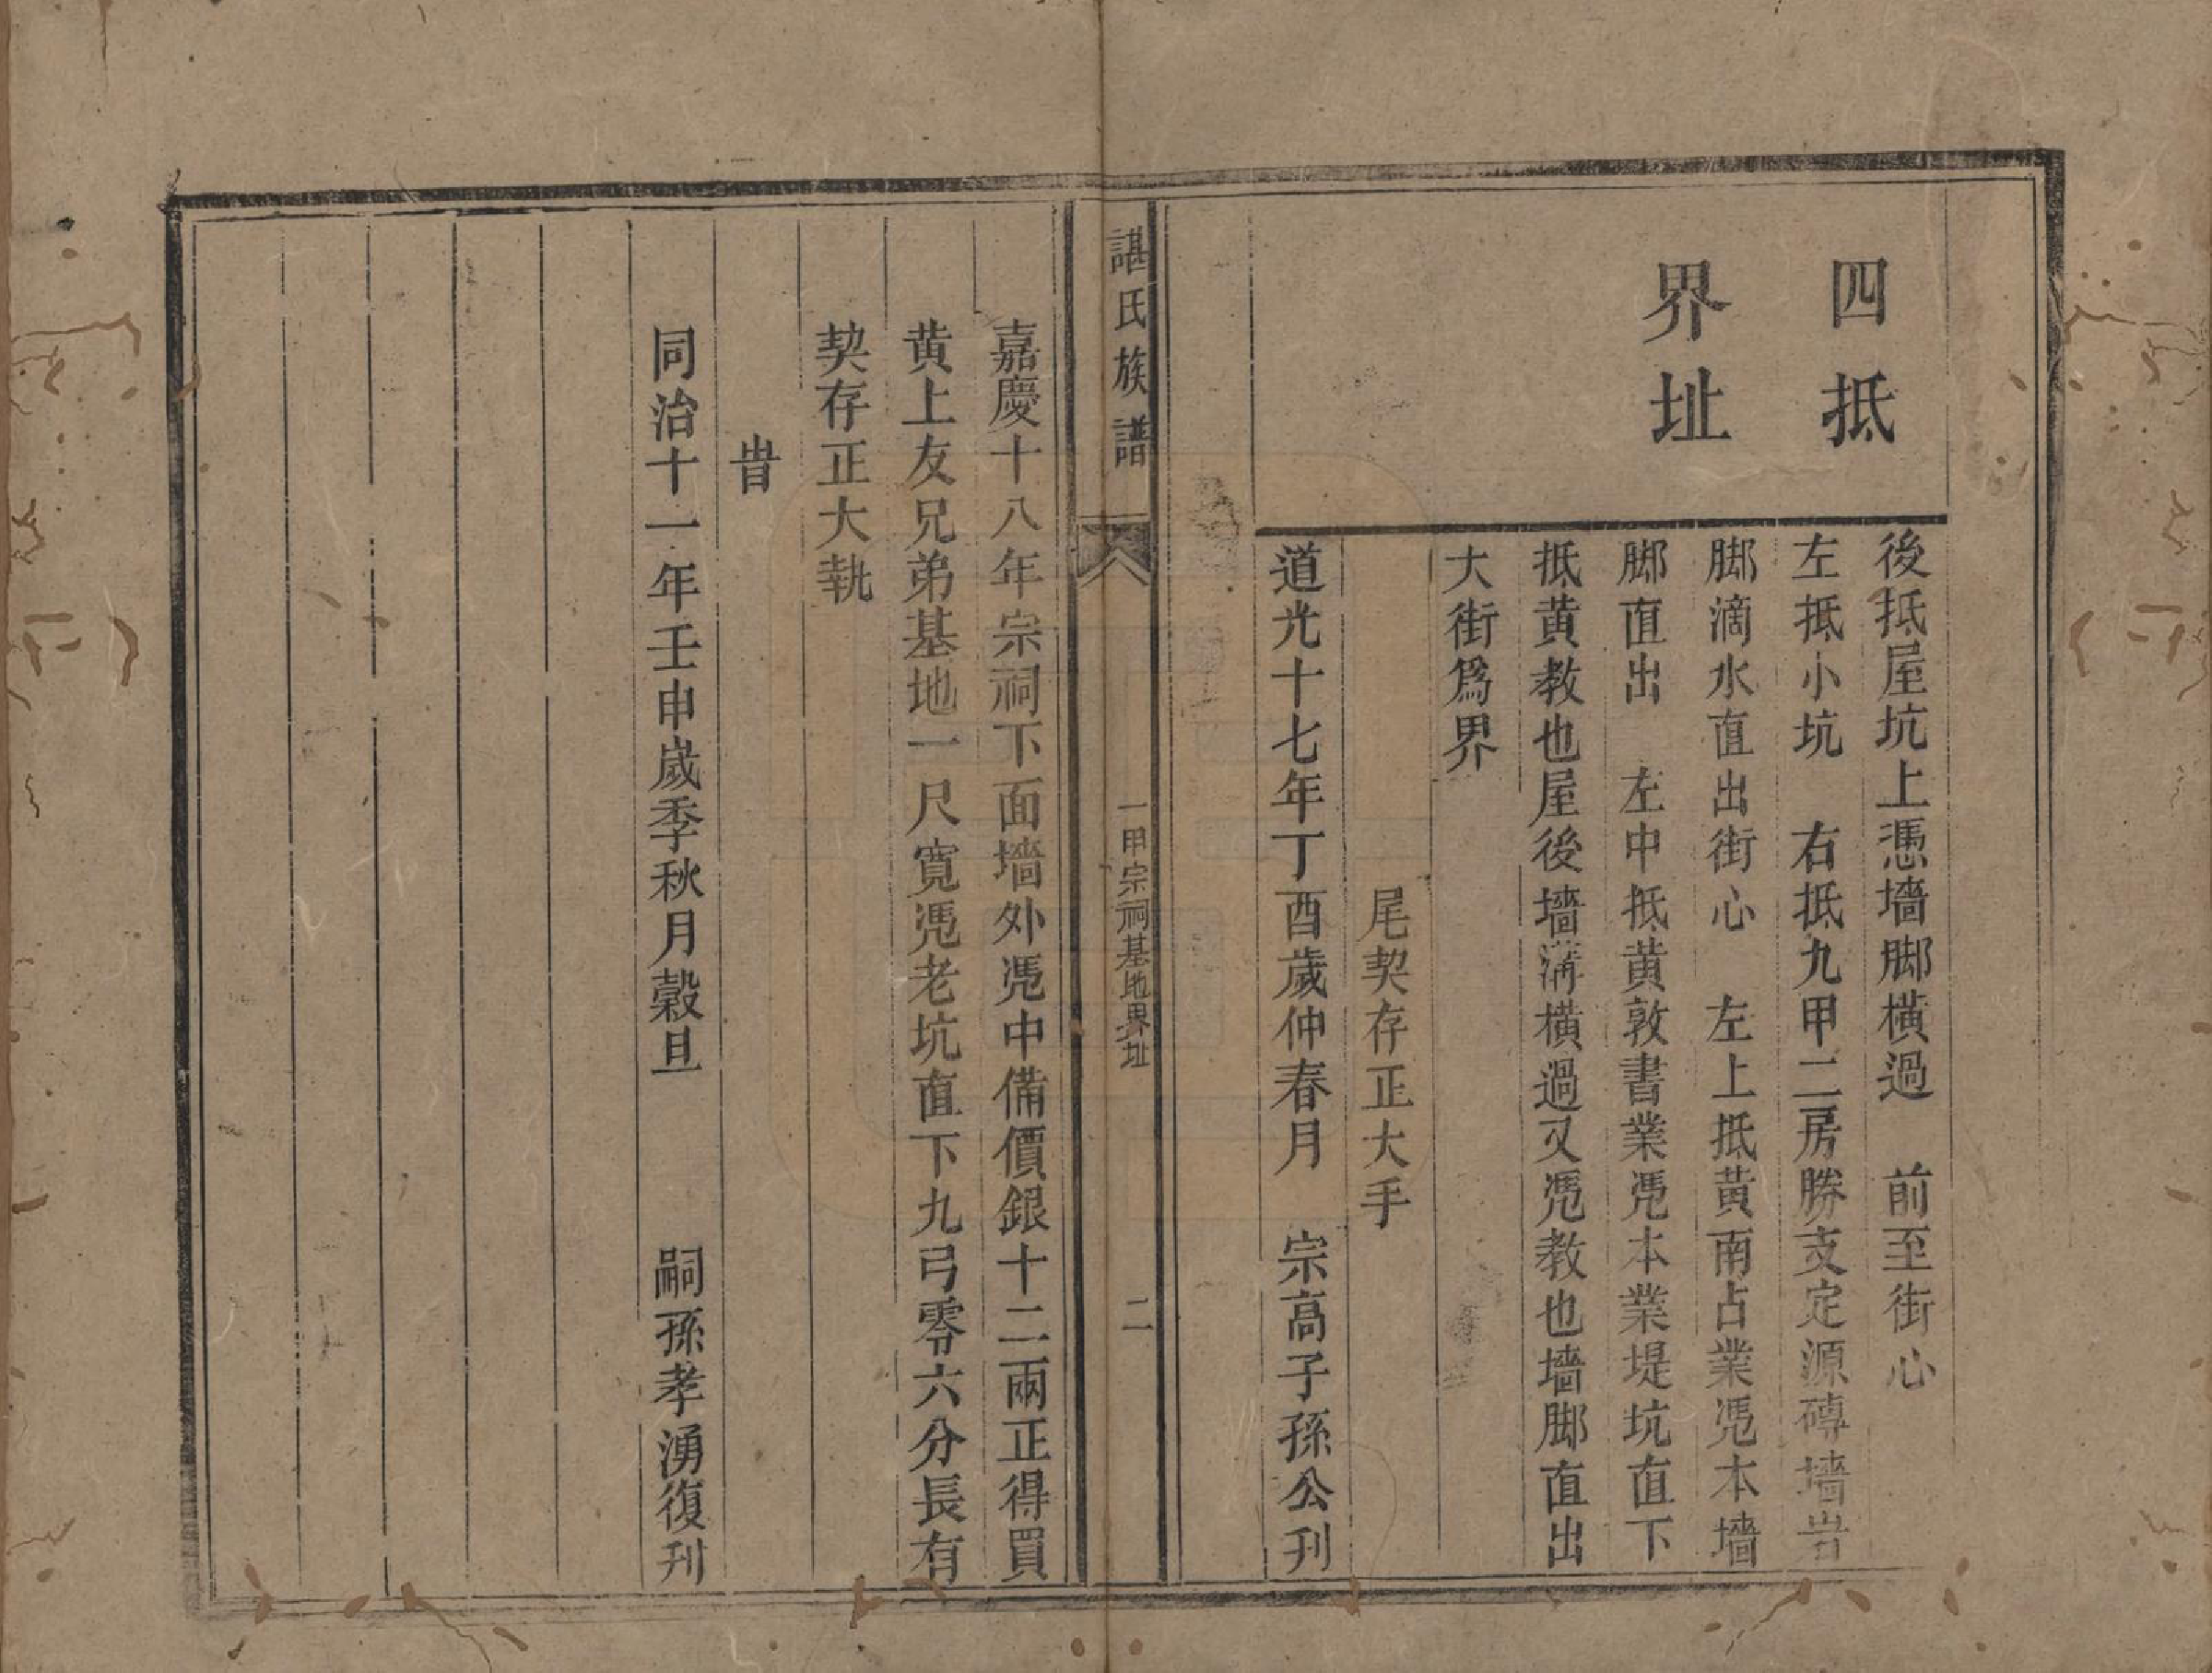 四抵
界址
後抵屋坑上憑墻脚橫過　前至街心
左抵小坑　右抵九甲二房勝支定源磚墻旹
脚滴水直出街心　左上抵黃南占業凴本墻
脚直出　左中抵黄敦書業凴本業堤坑直下
抵黄教也屋後墻溝橫過又凴教也墻脚直出
大街爲界
尾契存正大手
道光十七年丁酉歲仲春月　宗高子孫公刊
諶氏族譜
一甲宗祠基地界址
二
嘉慶十八年宗祠下面墻外凴中備價銀十二兩正得買
黄上友兄弟基地一尺寬凴老坑直下九弓零六分長有
契存正大執
旹
同治十一年壬申歲季秋月穀旦　嗣孫孝湧復刊